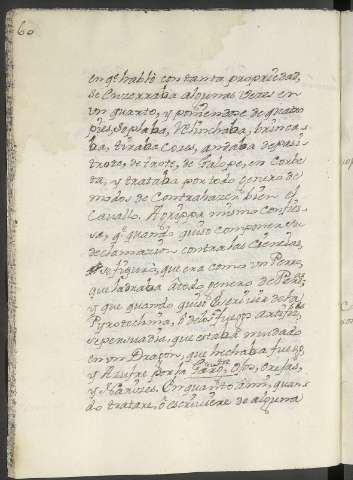 60
en q.e hablò con tanta propriedad,
se Enzerraba algunas Vezes en
un quarto, y poniendose de quatro
pies, soplaba, relinchaba, brinca-
ba, tiraba Cozes, andaba de pasi
trote, de trote, de Galope, en Corbe
ta, y trataba por todo genero de
modos de Contrahazer bien el
Cavallo. Agrippa mismo confies-
sa, q.e quando quiso componer su
declamazion contra las Ciencias,
se figurò, que era como un Perro,
que ladraba à todo genero de Pers.s
y que quando quiso Escrivir de la
Pyrotechnia, ò de los fuegos artifiz.s
se persuadia, que estaba mudado
en un Dragon, que hechaba fuego,
y Azufre por la Garg.ta Ojos, orejas,
y Narizes. En quanto à mi, quan-
do tratare, ò escriviere de alguna